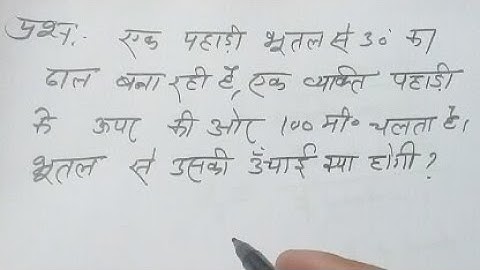 प्रश्न:- एक पहाड़ी भूतल से 30° का
ढाल बना रही है, एक व्यक्ति पहाड़ी
के ऊपर की ओर 100 मी० चलता है।
भूतल से उसकी उँचाई क्या होगी?